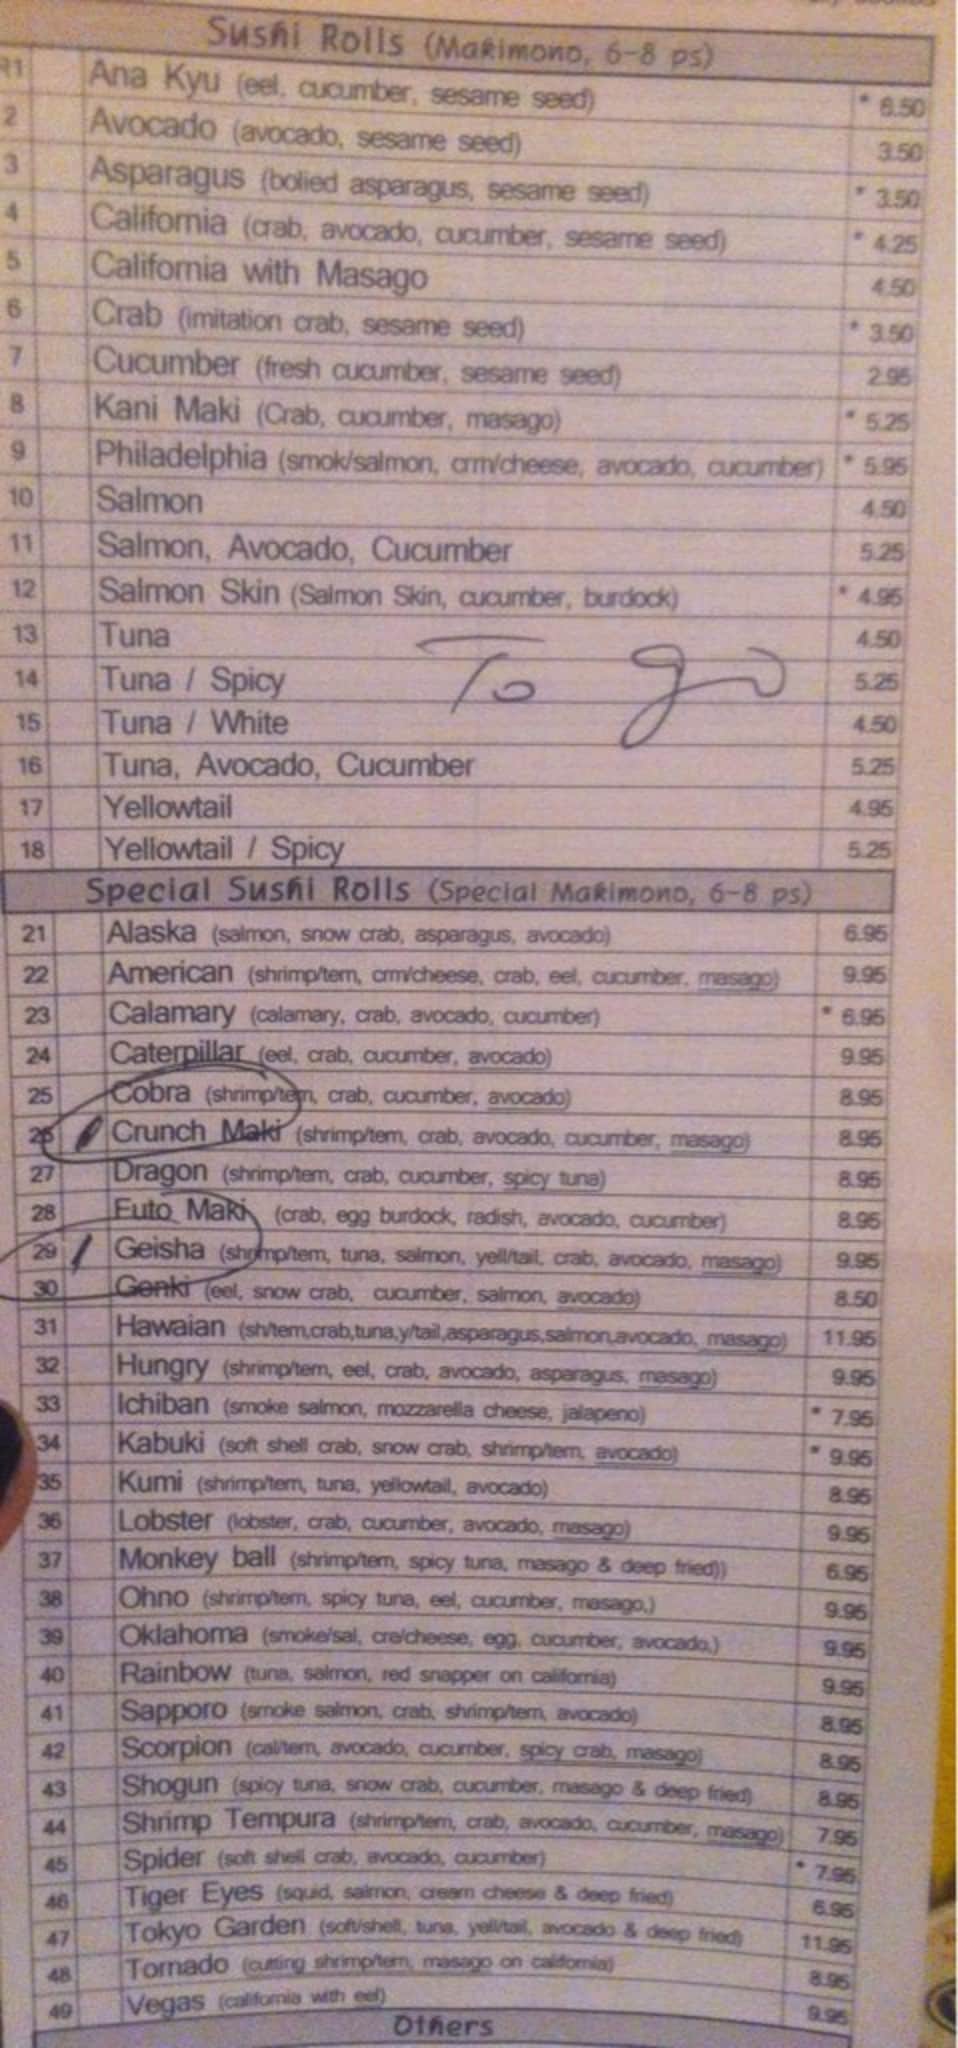 Sushi Rolls (Makimono, 6-8 ps)
R1 Ana Kyu (eel, cucumber, sesame seed) * 6.50
2 Avocado (avocado, sesame seed) 3.50
3 Asparagus (bolied asparagus, sesame seed) * 3.50
4 California (crab, avocado, cucumber, sesame seed) * 4.25
5 California with Masago 4.50
6 Crab (imitation crab, sesame seed) * 3.50
7 Cucumber (fresh cucumber, sesame seed) 2.95
8 Kani Maki (Crab, cucumber, masago) * 5.25
9 Philadelphia (smok/salmon, crm/cheese, avocado, cucumber) * 5.95
10 Salmon 4.50
11 Salmon, Avocado, Cucumber 5.25
12 Salmon Skin (Salmon Skin, cucumber, burdock) * 4.95
13 Tuna 4.50
To go
14 Tuna / Spicy 5.25
15 Tuna / White 4.50
16 Tuna, Avocado, Cucumber 5.25
17 Yellowtail 4.95
18 Yellowtail / Spicy 5.25
Special Sushi Rolls (Special Makimono, 6-8 ps)
21 Alaska (salmon, snow crab, asparagus, avocado) 6.95
22 American (shrimp/tem, crm/cheese, crab, eel, cucumber, masago) 9.95
23 Calamary (calamary, crab, avocado, cucumber) * 6.95
24 Caterpillar (eel, crab, cucumber, avocado) 9.95
25 Cobra (shrimp/tem, crab, cucumber, avocado) 8.95
26 Crunch Maki (shrimp/tem, crab, avocado, cucumber, masago) 8.95
27 Dragon (shrimp/tem, crab, cucumber, spicy tuna) 8.95
28 Futo Maki (crab, egg burdock, radish, avocado, cucumber) 8.95
29 Geisha (shrimp/tem, tuna, salmon, yell/tail, crab, avocado, masago) 9.95
30 Genki (eel, snow crab, cucumber, salmon, avocado) 8.50
31 Hawaian (sh/tem,crab,tuna,y/tail,asparagus,salmon,avocado, masago) 11.95
32 Hungry (shrimp/tem, eel, crab, avocado, asparagus, masago) 9.95
33 Ichiban (smoke salmon, mozzarella cheese, jalapeno) * 7.95
34 Kabuki (soft shell crab, snow crab, shrimp/tem, avocado) * 9.95
35 Kumi (shrimp/tem, tuna, yellowtail, avocado) 8.95
36 Lobster (lobster, crab, cucumber, avocado, masago) 9.95
37 Monkey ball (shrimp/tem, spicy tuna, masago & deep fried)) 6.95
38 Ohno (shrimp/tem, spicy tuna, eel, cucumber, masago,) 9.95
39 Oklahoma (smoke/sal, cre/cheese, egg, cucumber, avocado,) 9.95
40 Rainbow (tuna, salmon, red snapper on california) 9.95
41 Sapporo (smoke salmon, crab, shrimp/tem, avocado) 8.95
42 Scorpion (cal/tem, avocado, cucumber, spicy crab, masago) 8.95
43 Shogun (spicy tuna, snow crab, cucumber, masago & deep fried) 8.95
44 Shrimp Tempura (shrimp/tem, crab, avocado, cucumber, masago) 7.95
45 Spider (soft shell crab, avocado, cucumber) * 7.95
46 Tiger Eyes (squid, salmon, cream cheese & deep fried) 6.95
47 Tokyo Garden (soft/shell, tuna, yell/tail, avocado & deep fried) 11.95
48 Tornado (cutting shrimp/tem, masago on california) 8.95
49 Vegas (california with eel) 9.95
Others